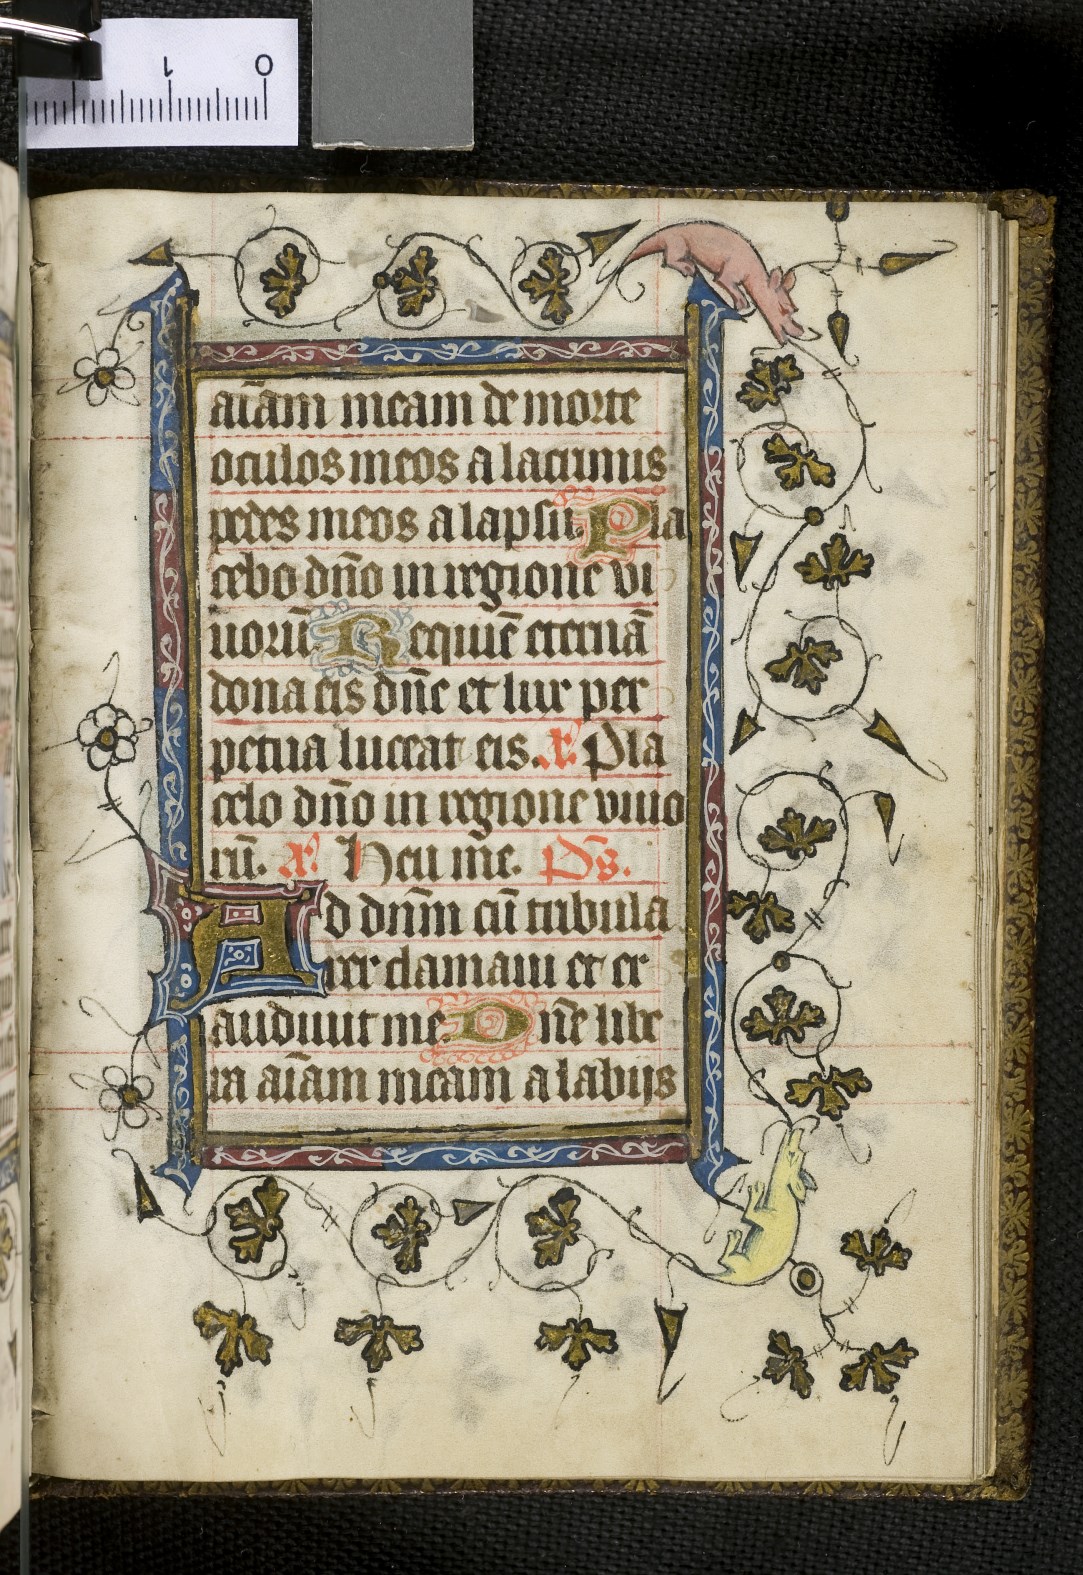 aīam meam de morte
oculos meos a lacrimis
pedes meos a lapsu. Pla
cebo dn̄o in regione vi
uorū Requiē eternā
dona eis dn̄e et lux per
petua luceat eis. Pla
cebo dn̄o in regione viuo
rū. Heu me. Ps.
Ad dn̄m cū tribula
rer clamaui et ex
audiuit me. Dn̄e libe
ra aīam meam a labijs
1 0